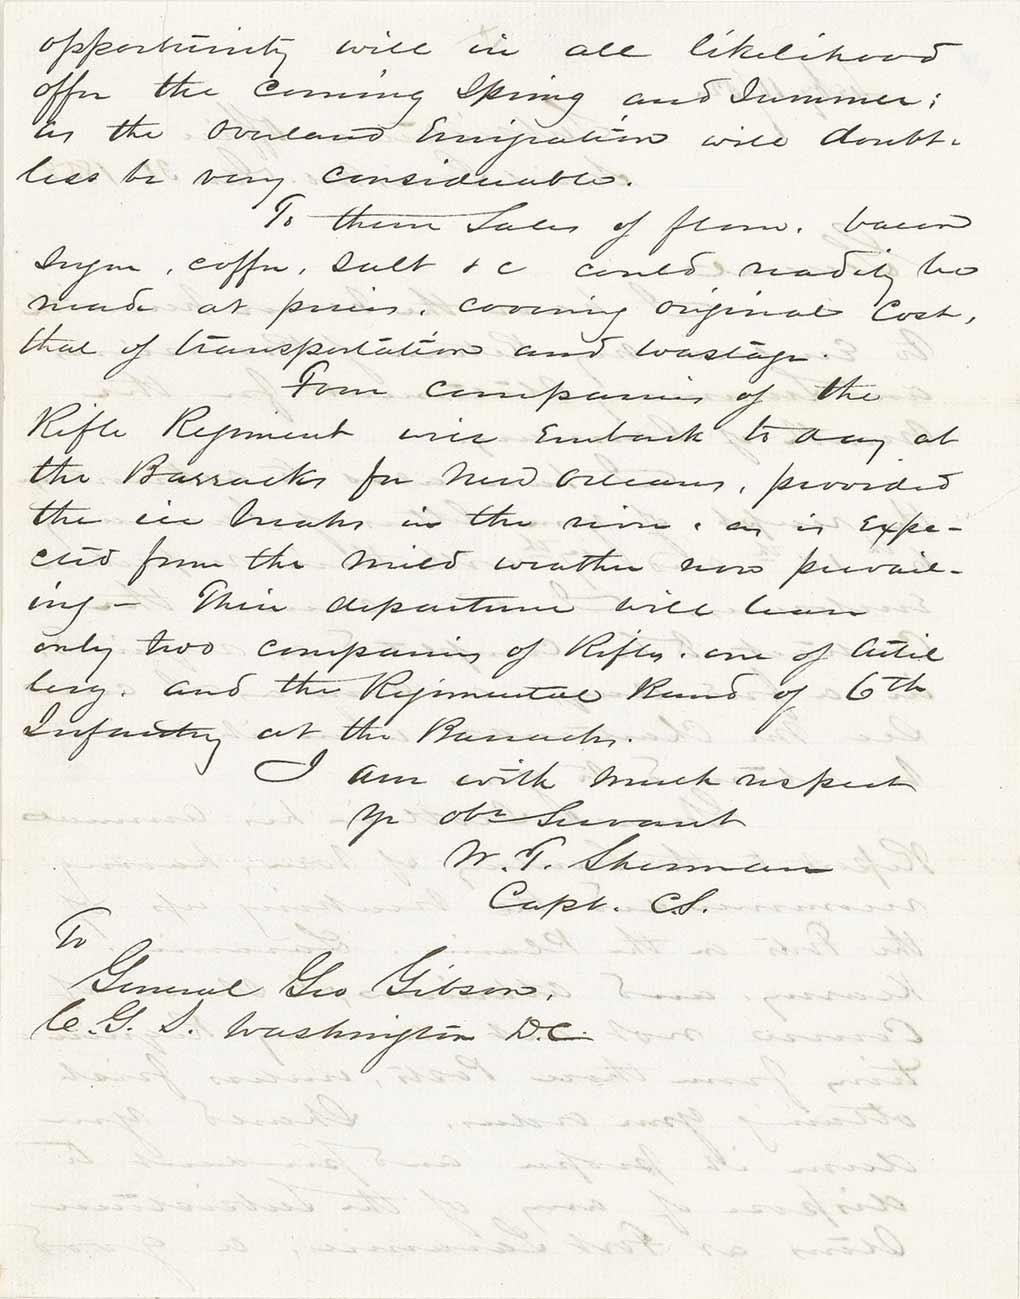 opportunity will in all likelihood
offer the coming Spring and Summer;
as the Overland Emigration will doubt-
less be very considerable.
To them Sales of flour, bacon
Sugar, coffee, salt &c could readily be
made at prices, covering original Cost,
that of transportation and wastage.
Four companies of the
Rifle Regiment will Embark to day at
the Barracks for New Orleans, provided
the ice breaks in the river, as is Expe-
cted from the mild weather now prevail-
ing - Their departure will leave
only two companies of Rifles, one of Artil
lery, and the Regimental Band of 6th
Infantry at the Barracks.
I am with much respect
Yr obt Servant
W. T. Sherman
Capt. C.S.
To
General Geo Gibson,
C.G.S. Washington D.C.